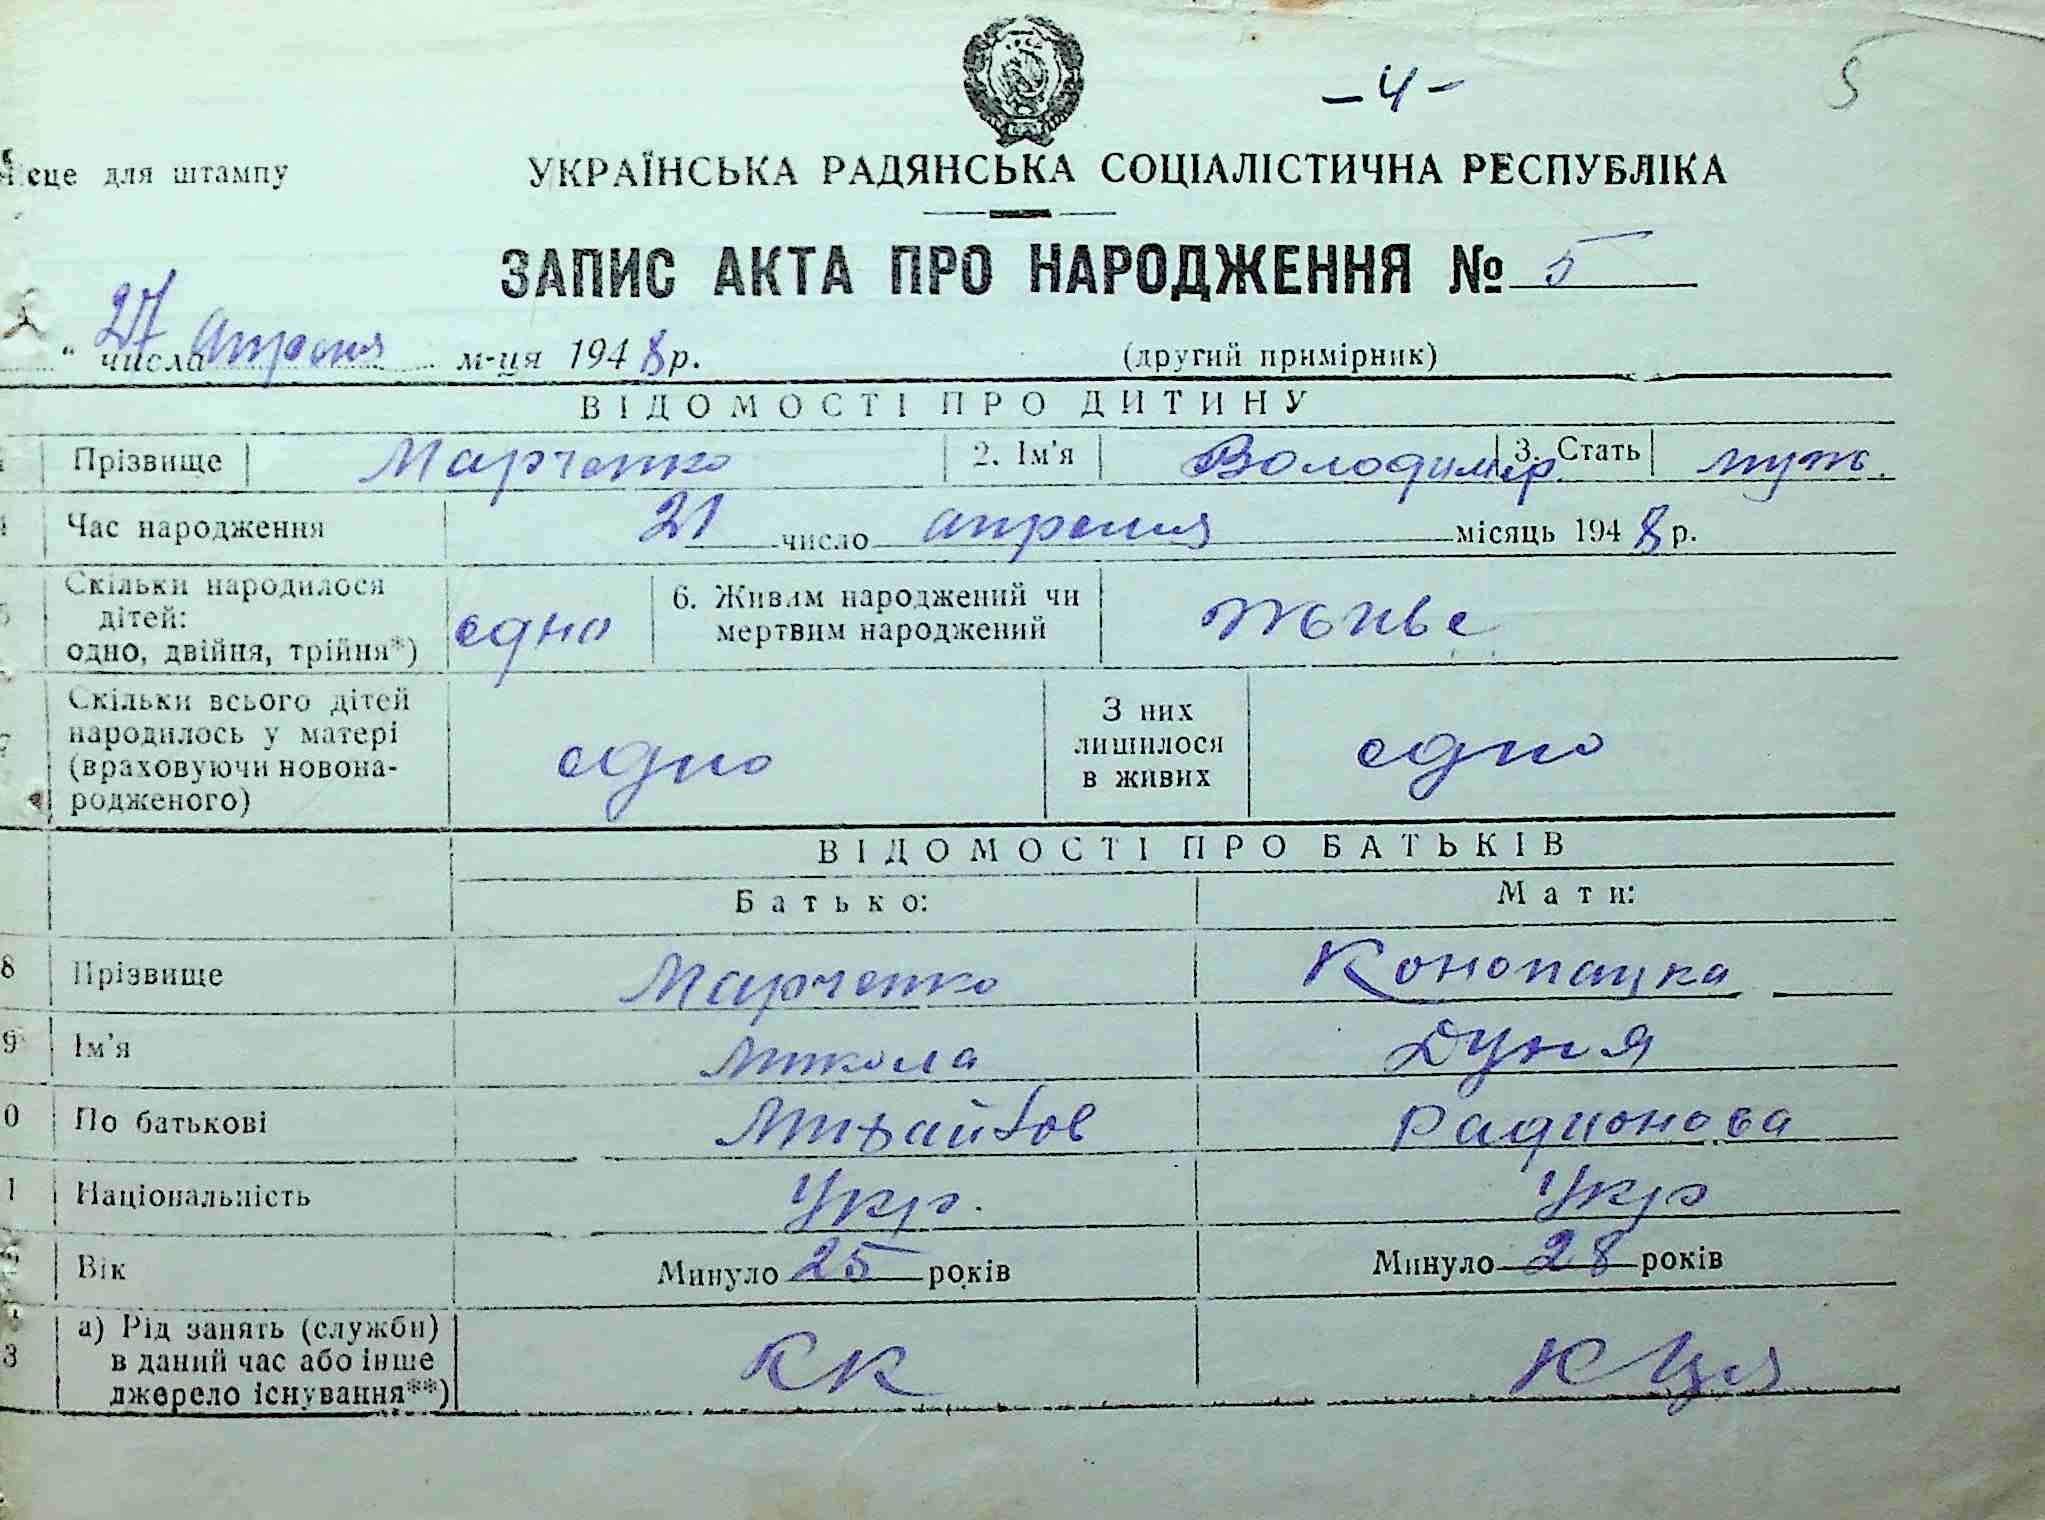 - 4 -
5
ісце для штампу
УКРАЇНСЬКА РАДЯНСЬКА СОЦІАЛІСТИЧНА РЕСПУБЛІКА
ЗАПИС АКТА ПРО НАРОДЖЕННЯ № 5
" 27 числа апреля м-ця 1948 р. (другий примірник)
ВІДОМОСТІ ПРО ДИТИНУ
Прізвище Марченко 2. Ім'я Володимир 3. Стать муж.
Час народження 21 число апреля місяць 1948 р.
Скільки народилося
дітей:
одно, двійня, трійня*)
едно
6. Живим народжений чи
мертвим народжений
Скільки всього дітей
народилось у матері
(враховуючи новона-
родженого)
едно
З них
лишилося
в живих
едно
ВІДОМОСТІ ПРО БАТЬКІВ
Батько: Мати:
8 Прізвище Марченко Конопацка
9 Ім'я Микола Дуня
0 По батькові Радионова
1 Національність Укр. Укр
2 Вік Минуло 25 років Минуло 28 років
3 а) Рід занять (служби)
в даний час або інше
джерело існування**)
КК